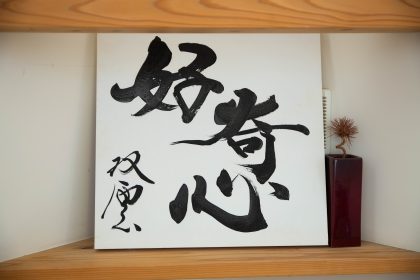 好奇心
双雲